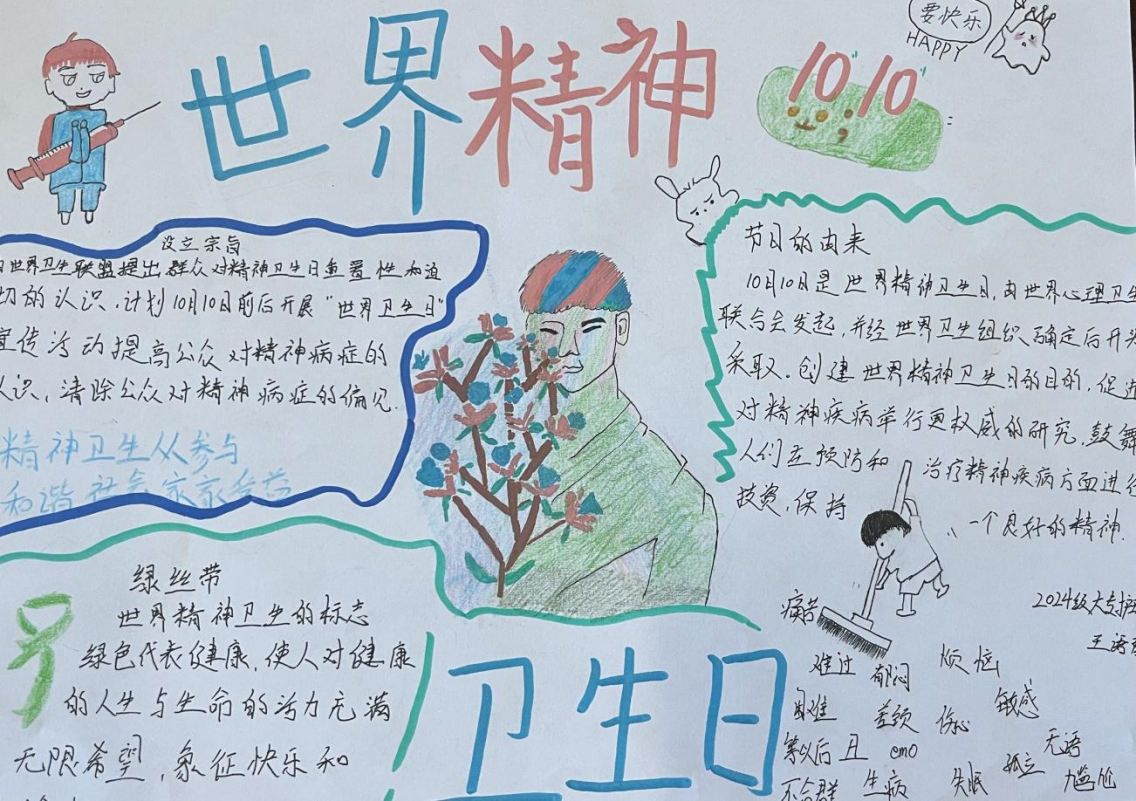 世界精神
10 10
要快乐
HAPPY
设立宗旨
世界卫生联盟提出群众对精神卫生日重要性和迫
切的认识.计划10月10日前后开展"世界卫生日"
宣传活动提高公众对精神病症的
认识,清除公众对精神病症的偏见.
精神卫生从参与
和谐社会家家
节日的由来
10月10日是世界精神卫生日,由世界心理卫生
联合会发起,并经世界卫生组织确定后开始
采取.创建世界精神卫生日的目的,促进
对精神疾病举行更权威的研究,鼓舞
人们在预防和治疗精神疾病方面进行
投资,保持一个良好的精神.
绿丝带
世界精神卫生的标志
绿色代表健康,使人对健康
的人生与生命的活力充满
无限希望,象征快乐和
卫生日
2024级大专护
王语
病苦
难过 郁闷 烦恼
困难 差颈 伤心 敏感
等以后 丑 emo 孤立 无语
不合群 生病 失眠 尴尬